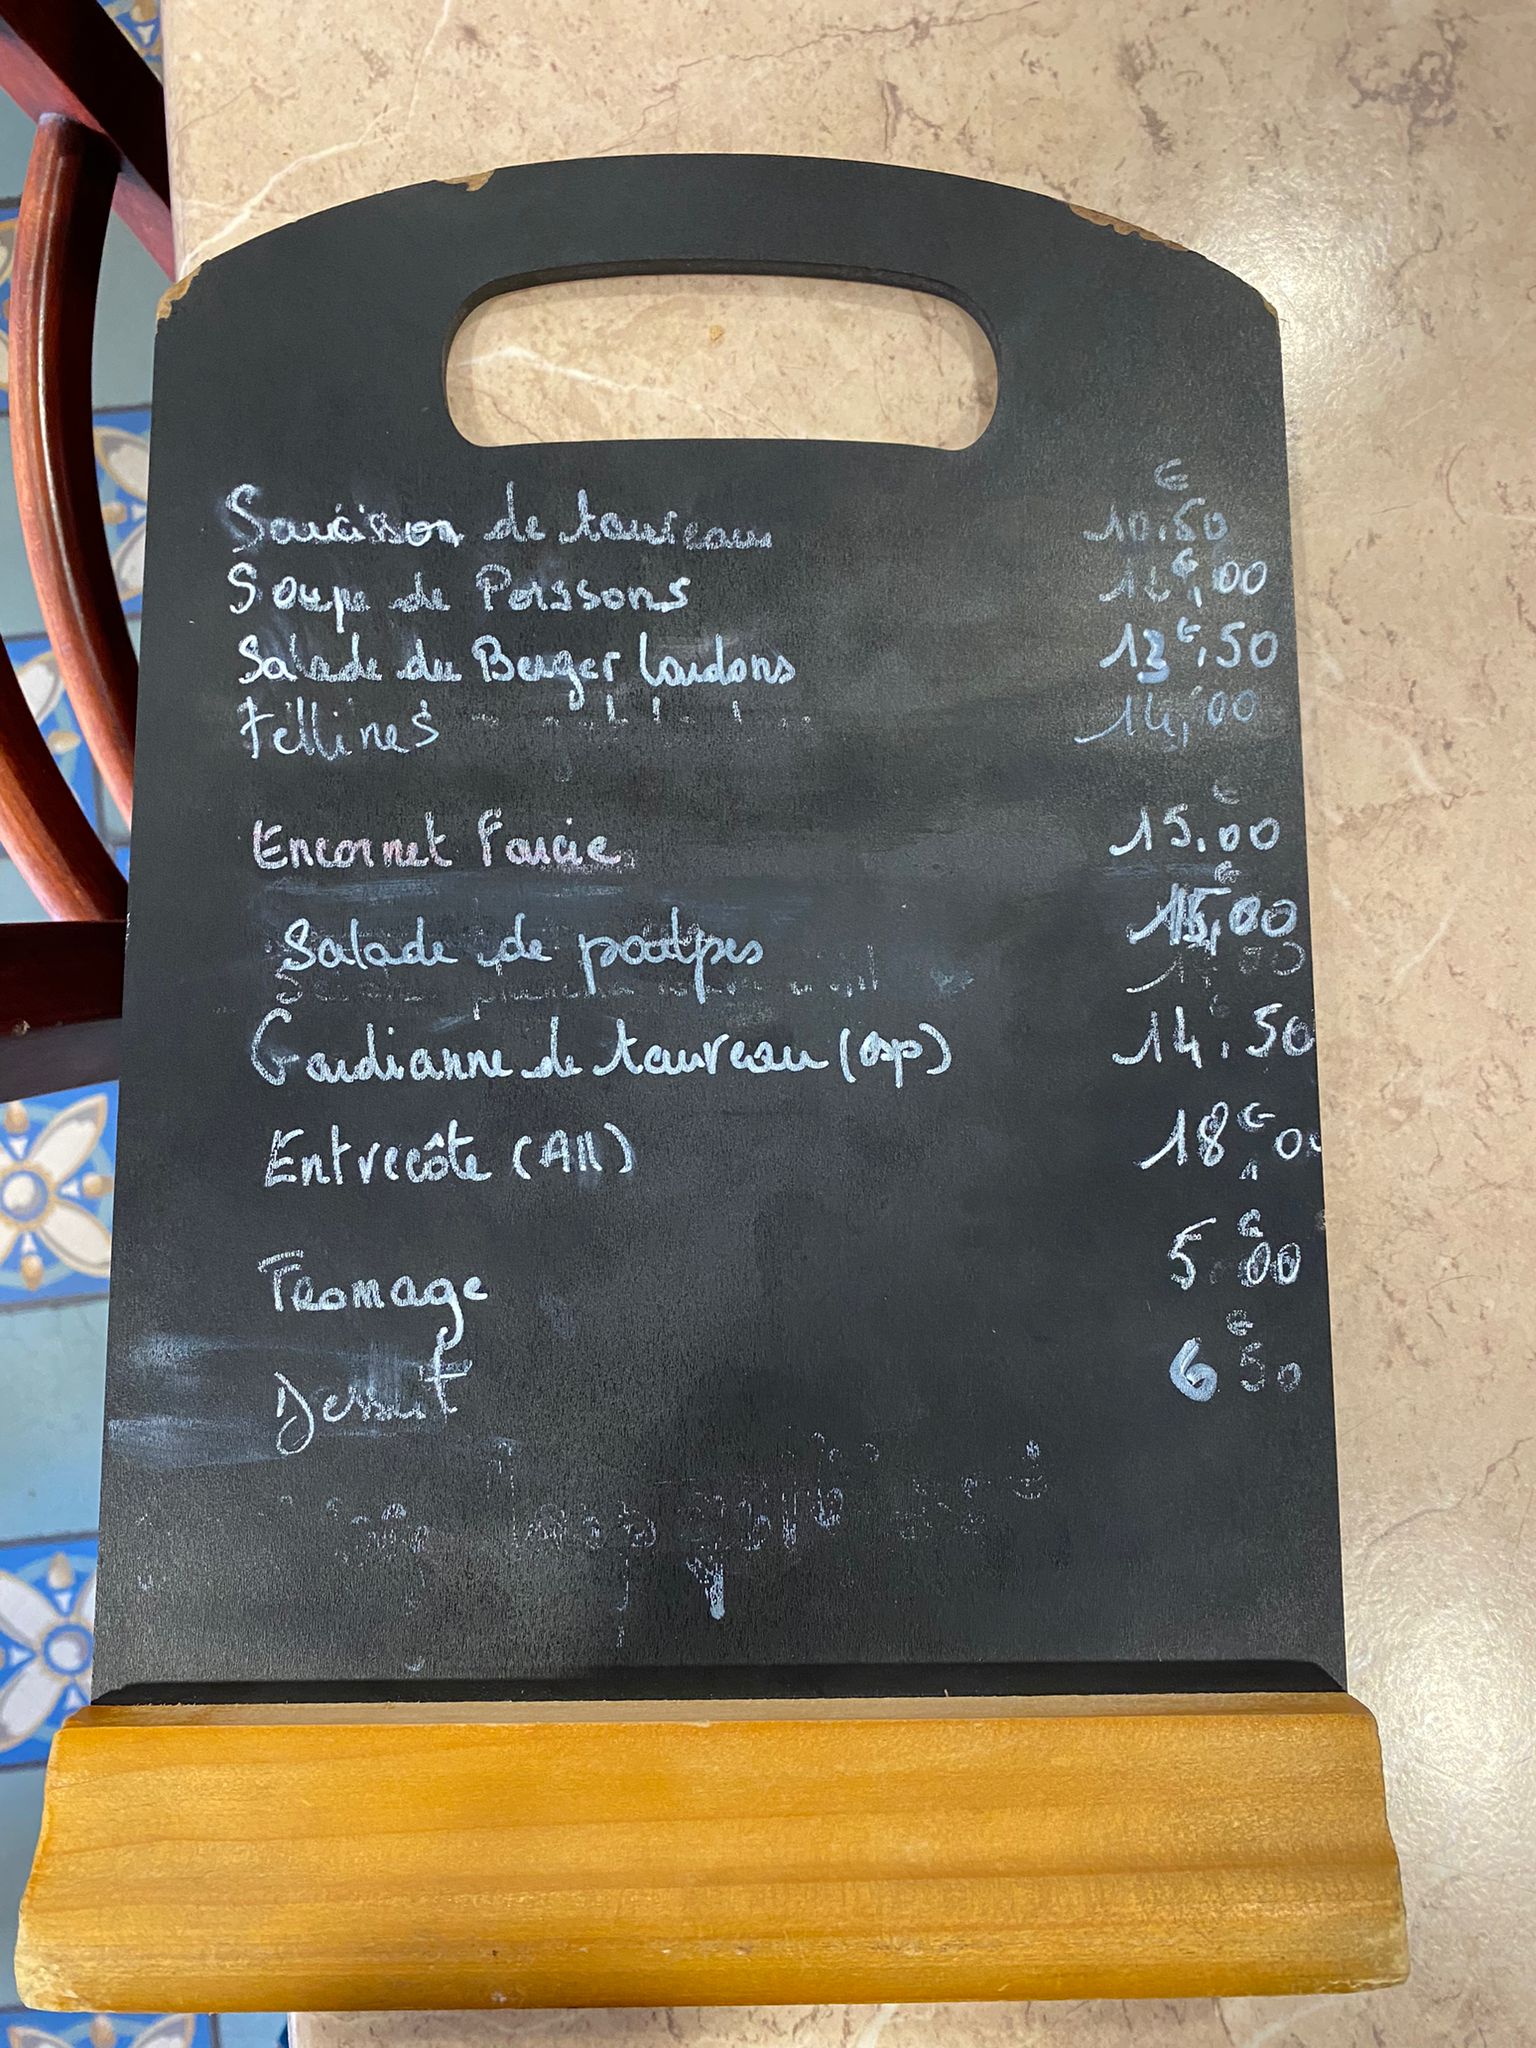 Saucisson de taureau 10,50 €
Soupe de Poissons 12€,00
Salade du Berger lardons 13€,50
Tellines 14,00
Encornet Farcie 15,00 €
Salade de poulpes 15,00 €
Gardianne de taureau (aop) 14€,50
Entrecôte (All) 18€,00
Fromage 5€00
Dessert 6€50